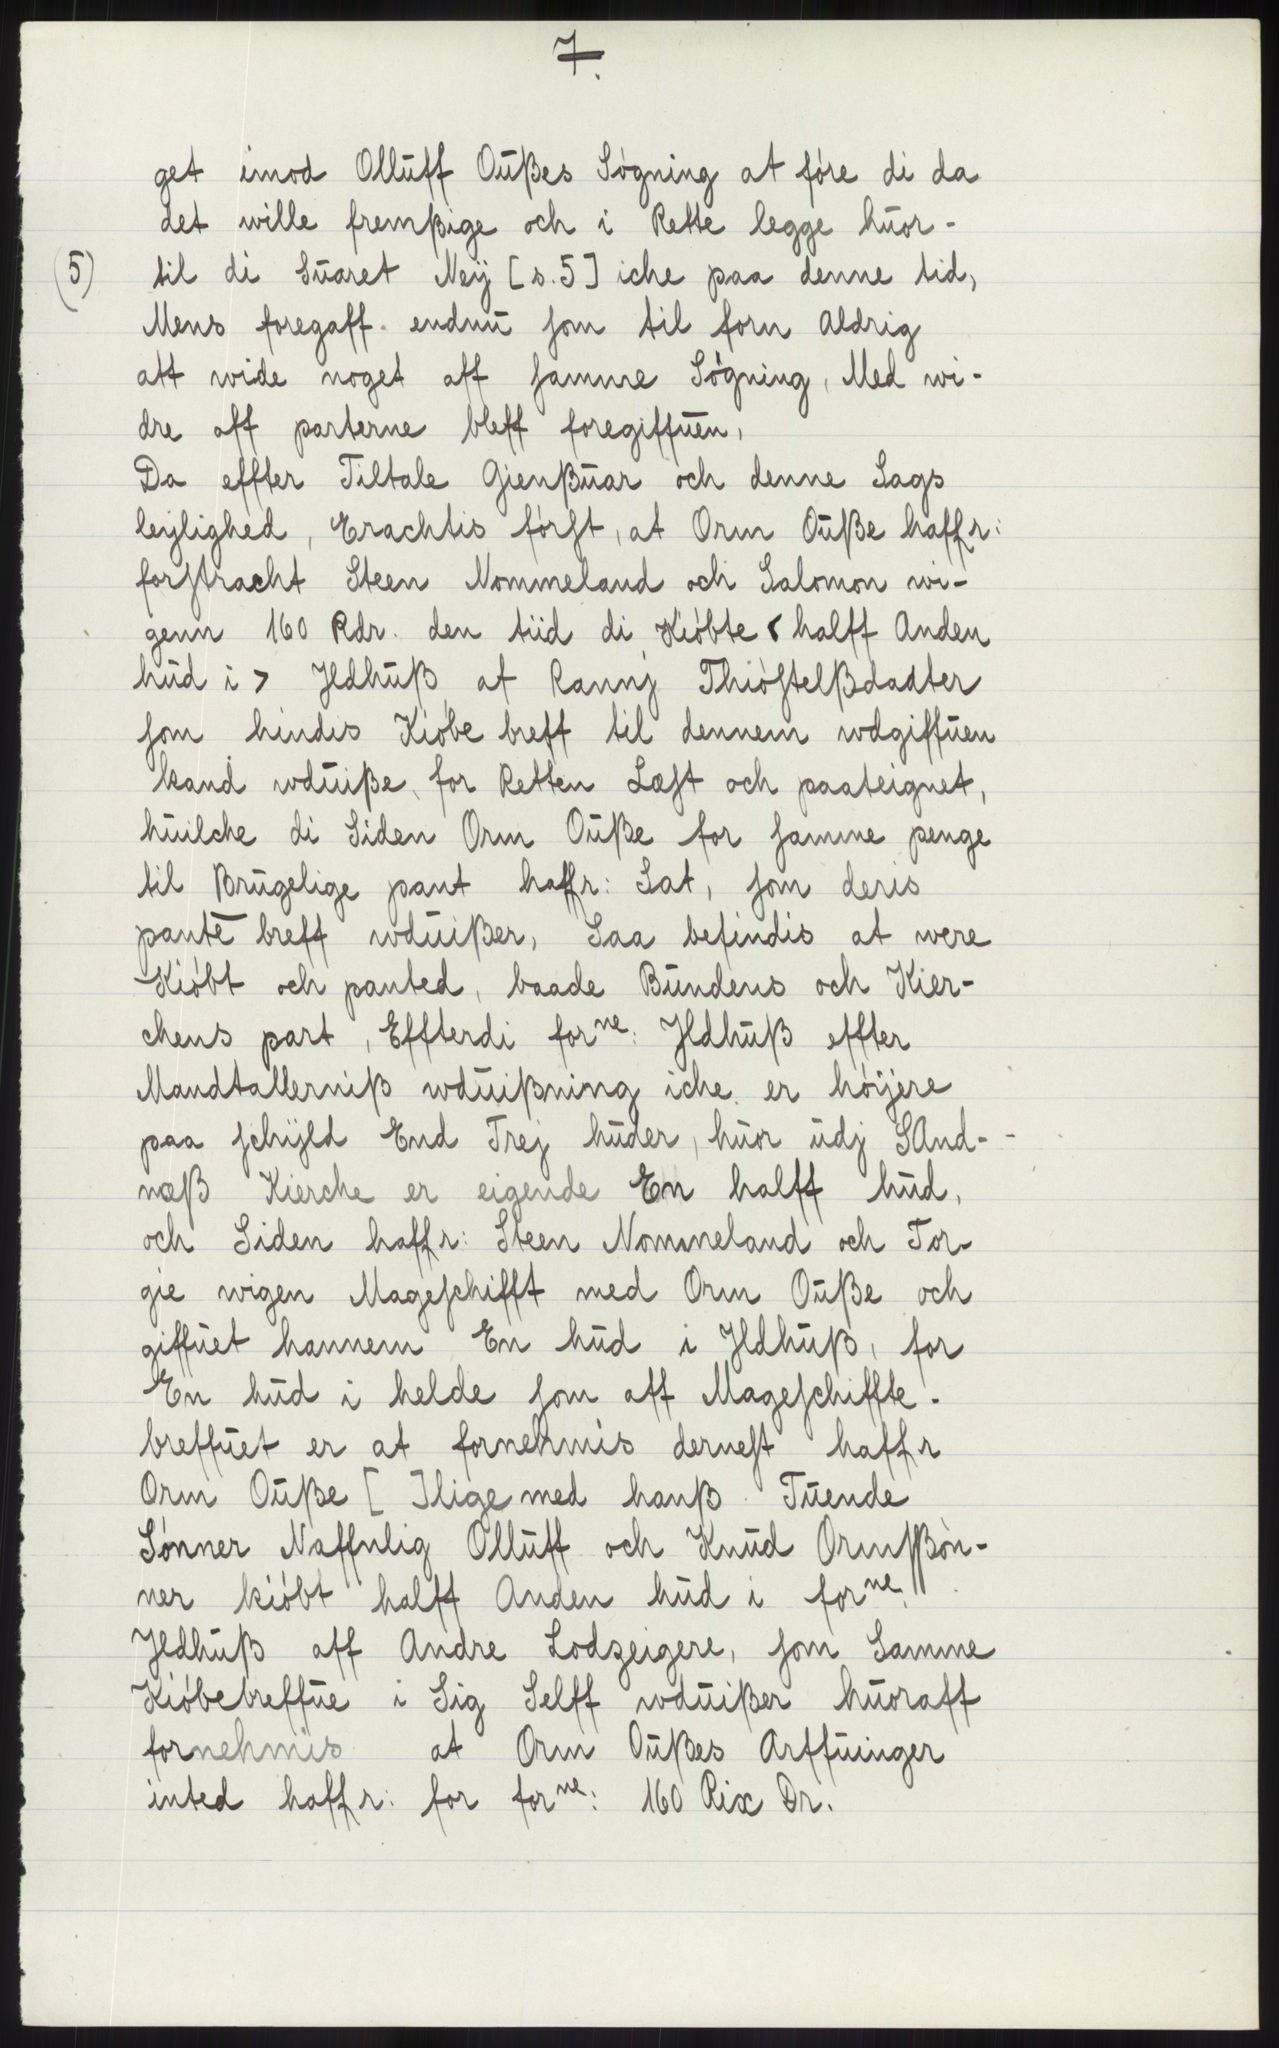 7.
get imod Olluff Oußes Søgning at føre di da
det wille fremßige och i Rette legge huor-
(5) til di Suaret Neij [s. 5] iche paa denne tid,
Mens foregaff endnu som til forn Aldrig
att wide noget aff samme Søgning, Med wi-
dre aff parterne bleff foregiffuen,
Da effter Tiltale Gienßuar och denne Sags
leylighed, Erachtis først, at Orm Ouße haffr:
forstracht Steen Nommeland och Salomon wi-
genn 160 Rdr. den tiid di Kiøbte < halff Anden
hud i > Jldhuß af Rannj Thiøstelßdadter
som hindis Kiøbe breff til dennem wdgiffuen
kand wduiße, for Retten Læst och paateignet,
huilche di Siden Orm Ouße for samme penge
til Brugelige pant haffr: Sat, som deris
pante breff wduißer, Saa befindis at were
Kiøbt och panted, baade Bundens och Kier-
chens part, Effterdi forne: Jldhuß effter
Mandtallerniß wduißning iche er høijere
paa schijld End Trej huder, huor udj SAnd-
næß Kierche er eigende En halff hud,
och Siden haffr: Steen Nommeland och Tor-
gie wigen Mageschifft med Orm Ouße och
giffuet hannem En hud i Jldhuß, for
En hud i helde som aff Mageschiffte-
breffuet er at fornehmis dernest haffr
Orm Ouße [ ]lige med hanß Tuende
Sønner Naffnlig Olluff och Knud Ormßøn-
ner kiøbt halff Anden hud i forne:
Jldhuß aff Andre Lodzeigere, som Samme
Kiøbebreffue i Sig Selff wduißer huoraff
fornehmis at Orm Oußes Arffuinger
inted haffr: for forne: 160 Rix Dr.